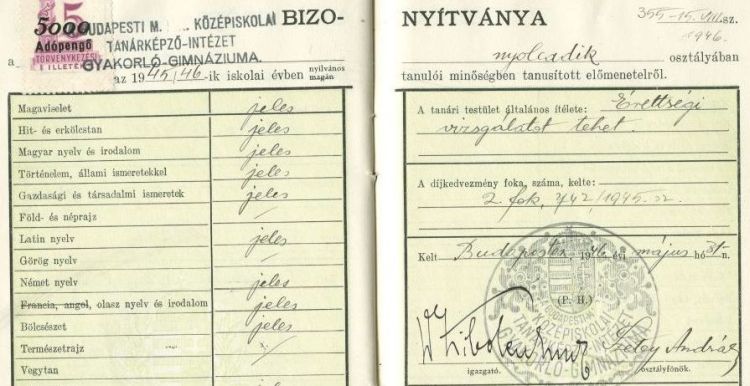 5000
Adópengő
5
TÖRVÉNYKEZÉSI
ILLETÉK
BUDAPESTI M. KÖZÉPISKOLAI
TANÁRKÉPZŐ-INTÉZET
GYAKORLÓ-GIMNÁZIUMA.
BIZO-
a
az 1945/46-ik iskolai évben nyilvános
magán
Magaviselet jeles
Hit- és erkölcstan jeles
Magyar nyelv és irodalom jeles
Történelem, állami ismeretekkel jeles
Gazdasági és társadalmi ismeretek jeles
Föld- és néprajz /
Latin nyelv jeles
Görög nyelv /
Német nyelv jeles
Francia, angol, olasz nyelv és irodalom jeles
Bölcsészet jeles
Természetrajz
Vegytan
NYÍTVÁNYA
355-15.VIII. sz.
1946.
nyolcadik osztályában
tanulói minőségben tanusított előmenetelről.
A tanári testület általános ítélete: Érettségi
vizsgálatot tehet.
A díjkedvezmény foka, száma, kelte:
2. fok, 742/1945.
Kelt Budapesten 1946 évi május hó 31-n.
(P. H.)
BUDAPESTI
KÖZÉPISKOLAI
TANÁRKÉPZŐ INTÉZET
GYAKORLÓ-GIMNÁZIUMA
András
igazgató.
osztályfőnök.